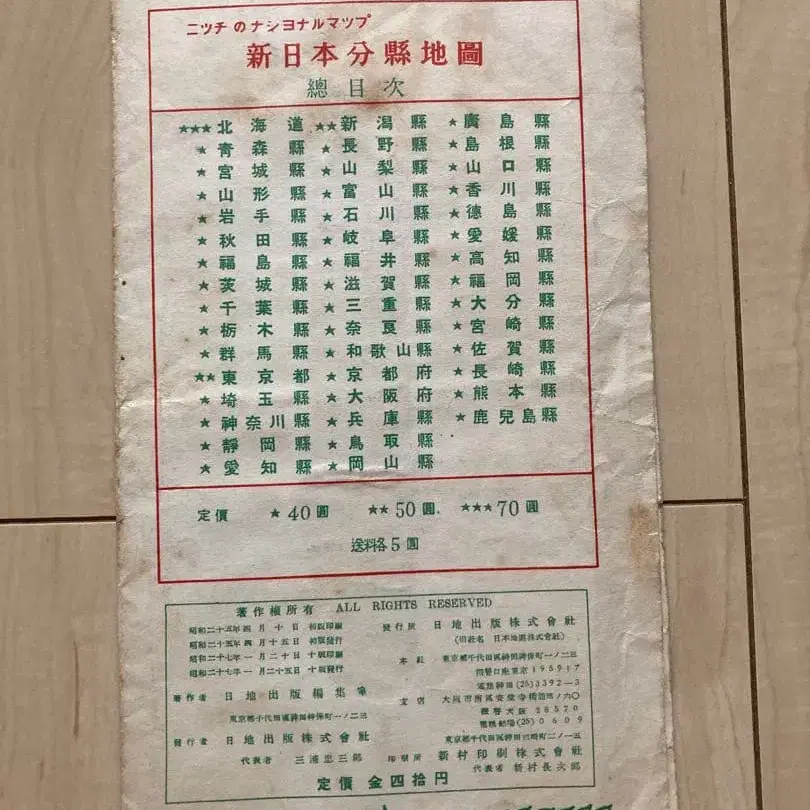 ニツチのナシヨナルマツプ
新日本分縣地圖
總目次
★★★北海道 ★★新潟縣 ★廣島縣
★青森縣 ★長野縣 ★島根縣
★宮城縣 ★山梨縣 ★山口縣
★山形縣 ★富山縣 ★香川縣
★岩手縣 ★石川縣 ★德島縣
★秋田縣 ★岐阜縣 ★愛媛縣
★福島縣 ★福井縣 ★高知縣
★茨城縣 ★滋賀縣 ★福岡縣
★千葉縣 ★三重縣 ★大分縣
★栃木縣 ★奈良縣 ★宮崎縣
★群馬縣 ★和歌山縣 ★佐賀縣
★★東京都 ★京都府 ★長崎縣
★埼玉縣 ★大阪府 ★熊本縣
★神奈川縣 ★兵庫縣 ★鹿兒島縣
★靜岡縣 ★鳥取縣
★愛知縣 ★岡山縣
定價 ★40圓 ★★50圓. ★★★70圓
送料各5圓
著作權所有 ALL RIGHTS RESERVED
昭和二十五年四月十日 初版印刷
昭和二十五年四月十五日 初版発行
昭和二十七年一月二十日 十版印刷
昭和二十七年一月二十五日 十版発行
著作者 日地出版編集室
東京都千代田區神田神保町一ノ二三
発行者 日地出版株式會社
代表者 三浦忠三郎
発行所 日地出版株式會社
(旧社名 日本地圖株式會社)
本社 東京都千代田區神田神保町一ノ二三
振替口座東京195917
電話神田(25)3392-3
支店 大阪市南區安堂寺橋通三ノ六〇
振替大阪38570
電話船場(25)0609
東京都千代田區神田三崎町二ノ一五
印刷所 新村印刷株式會社
代表者 新村長次郎
定價 金四拾円